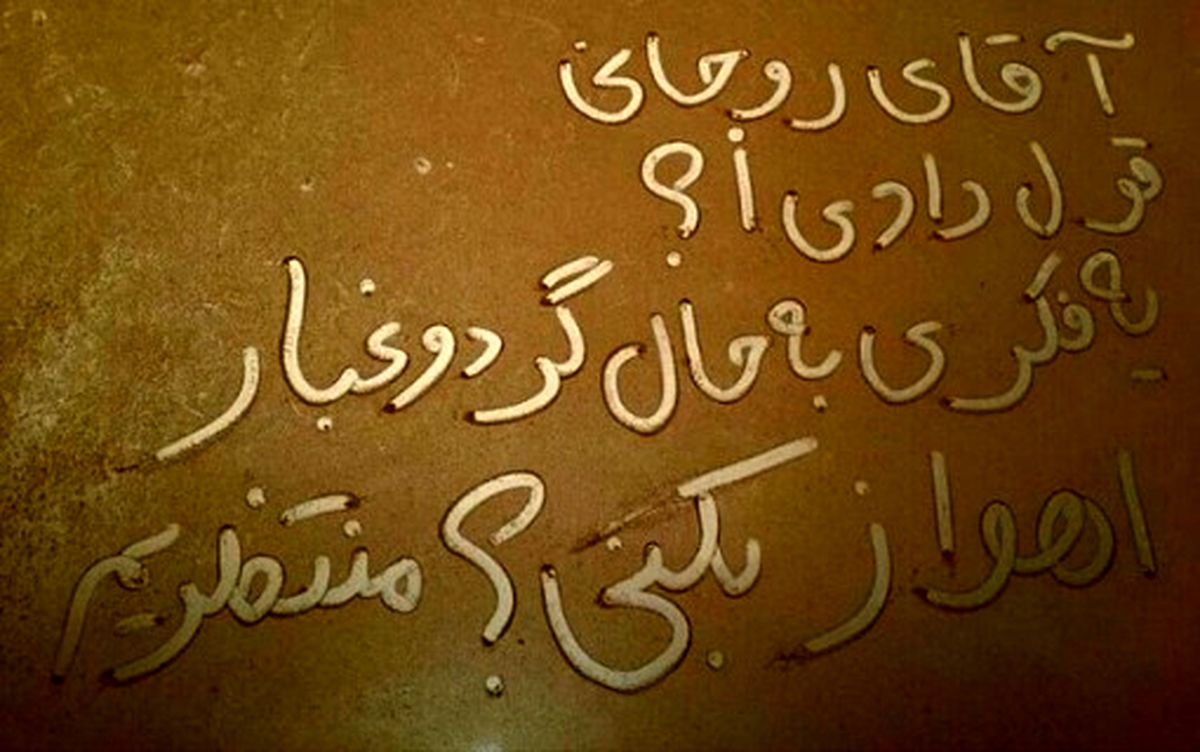 آقای روحانی
قول دادی اُ؟
یه فکری به حال گرد و غبار
اهواز بکنی؟ منتظریم